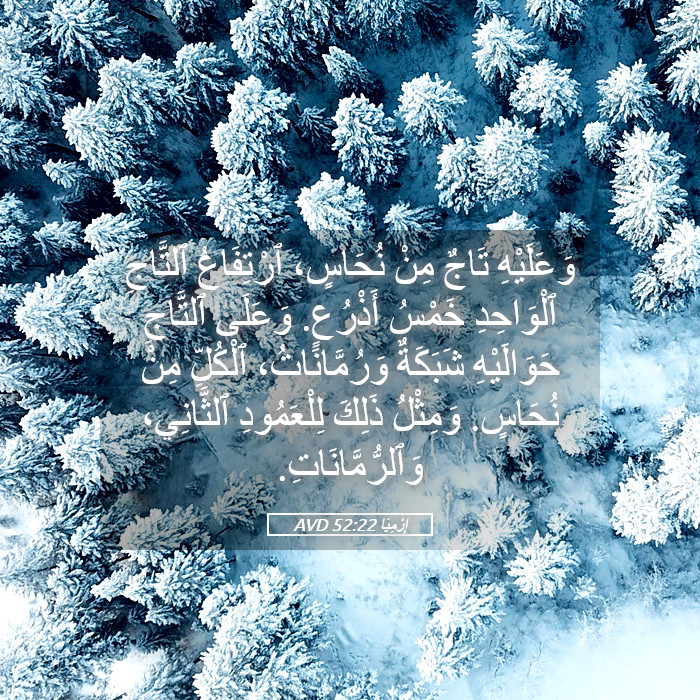 وَعَلَيْهِ تَاجٌ مِنْ نُحَاسٍ، ٱرْتِفَاعُ ٱلتَّاجِ
ٱلْوَاحِدِ خَمْسُ أَذْرُعٍ. وَعَلَى ٱلتَّاجِ
حَوَالَيْهِ شَبَكَةٌ وَرُمَّانَاتُ، ٱلْكُلُّ مِنْ
نُحَاسٍ. وَمِثْلُ ذَلِكَ لِلْعَمُودِ ٱلثَّانِي،
وَٱلرُّمَّانَاتِ.
إِرْمِيَا 52:22 AVD